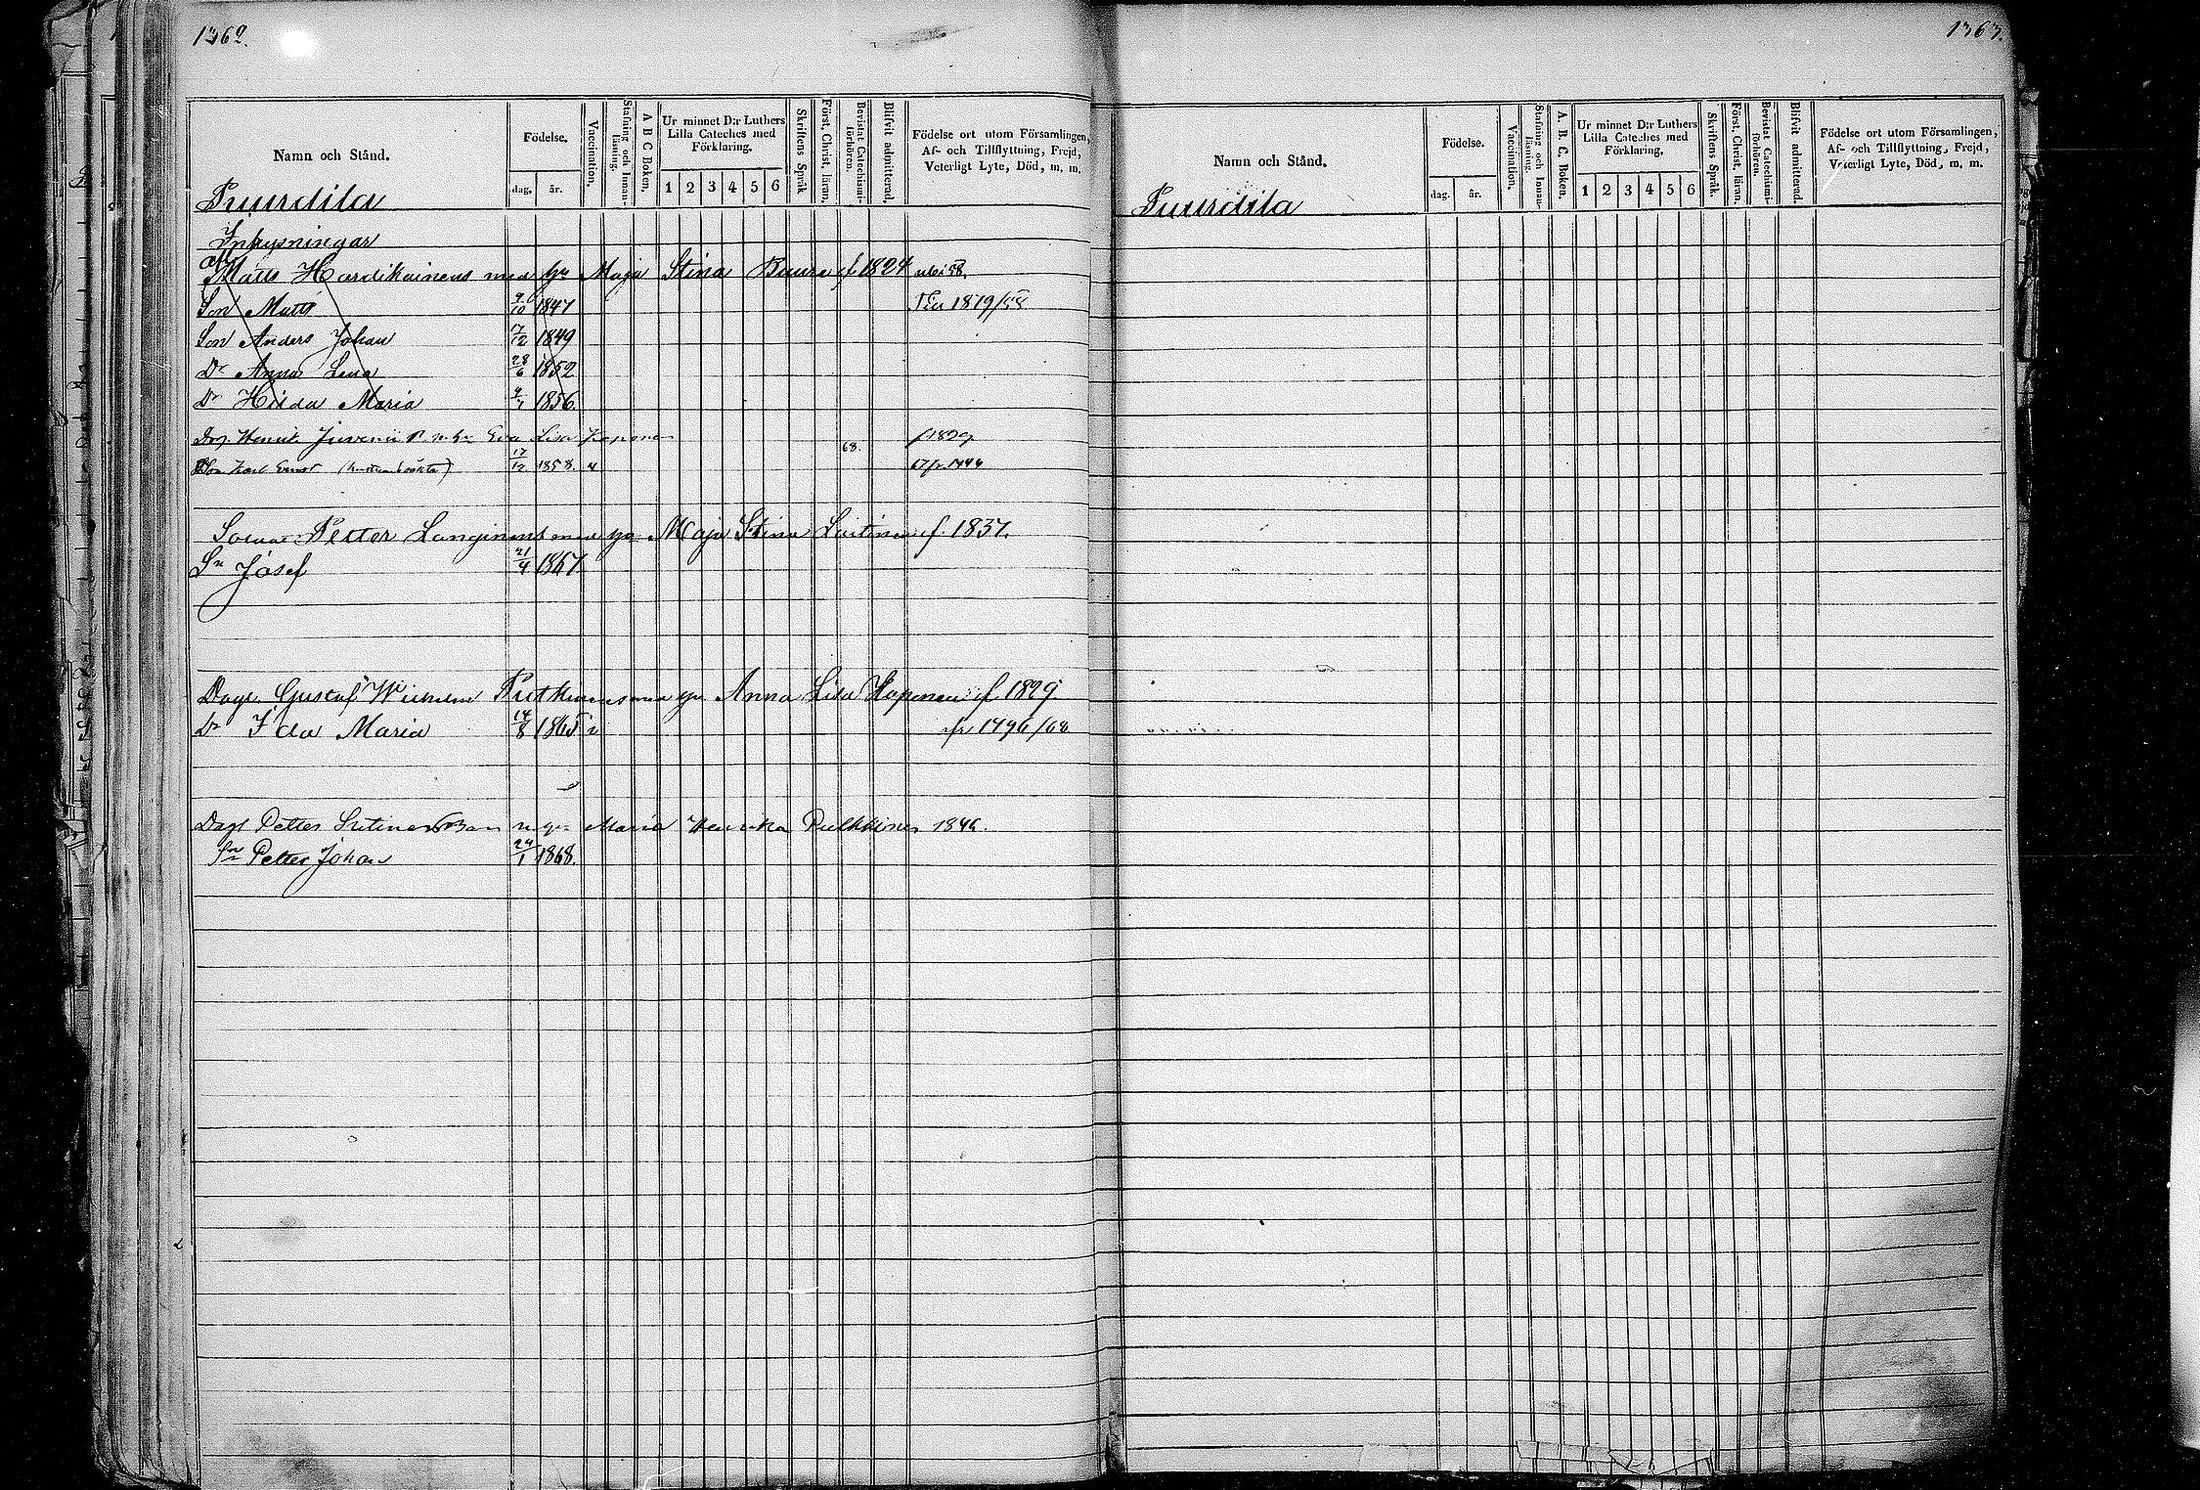 1362.
Namn och Stånd.
Födelse.
dag. år.
Vaccination.
Stafning och Innan-läsning.
A B C Boken.
Ur minnet D:r Luthers Lilla Cateches med Förklaring.
1 2 3 4 5 6
Skriftens Språk.
Först. Christ. läran.
Bevistat Catechismi-förhören.
Blifvit admitterad.
Födelse ort utom Församlingen, Af- och Tillflyttning, Frejd, Veterligt Lyte, Död, m. m.
Puurdila
Inhysningar
Matts Hardikainens med hu Maja Stina Buure f 1824
Son Matts 9/10 1847 1879/58
Son Anders Johan 17/12 1849
Dr Anna Lena 28/6 1852
Dr Hilda Maria 1856.
Henrik Eva Lisa f 1829
Son Karl Ernst 17/12 1858. 68.
Petter Langinens med hu Maja Stina f. 1837.
Sn Josef 21/4 1867
Dagk. Gustaf Wilhelm Putkinens med hu Anna Lisa Haponen f. 1829.
Dr Ida Maria 14/8 1865 v fr 1496/68
Dagk Petter Maria Henrika Pulkkinen 1846.
Sn Petter Johan 24/1 1868.
1363.
Namn och Stånd.
Födelse.
dag. år.
Vaccination.
Stafning och Innan-läsning.
A. B. C. Boken.
Ur minnet D:r Luthers Lilla Cateches med Förklaring.
1 2 3 4 5 6
Skriftens Språk.
Först. Christ. läran.
Bevistat Catechismi-förhören.
Blifvit admitterad.
Födelse ort utom Församlingen, Af- och Tillflyttning, Frejd, Veterligt Lyte, Död, m. m.
Puurdila